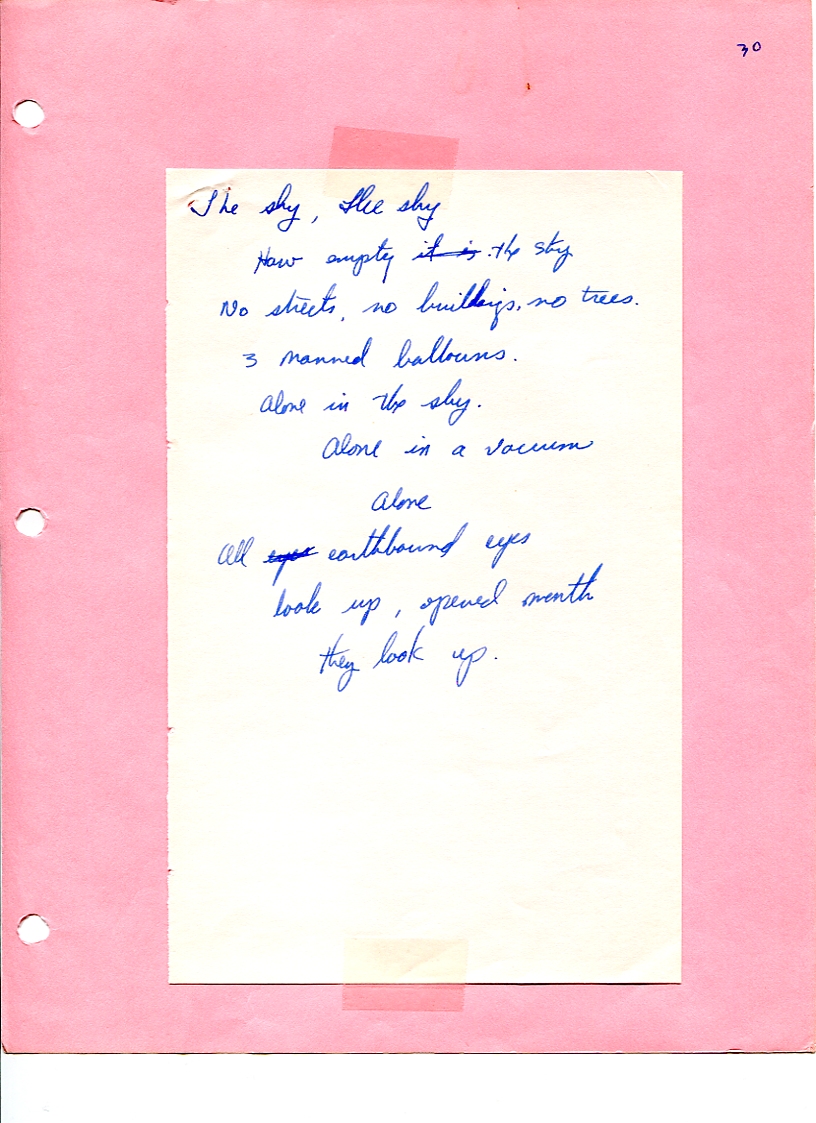 30
The sky, The sky
How empty ~~it is~~ the sky
No streets, no buildings, no trees.
3 manned balloons.
Alone in the sky.
Alone in a vacuum
Alone
All ~~eyes~~ earthbound eyes
look up, opened mouth
they look up.